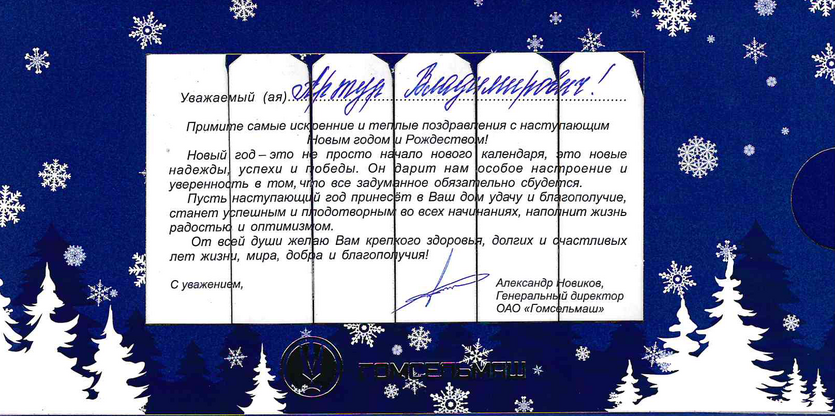 Уважаемый (ая)...Артур Владимирович!
Примите самые искренние и теплые поздравления с наступающим
Новым годом и Рождеством!
Новый год – это не просто начало нового календаря, это новые
надежды, успехи и победы. Он дарит нам особое настроение и
уверенность в том, что все задуманное обязательно сбудется.
Пусть наступающий год принесёт в Ваш дом удачу и благополучие,
станет успешным и плодотворным во всех начинаниях, наполнит жизнь
радостью и оптимизмом.
От всей души желаю Вам крепкого здоровья, долгих и счастливых
лет жизни, мира, добра и благополучия!
С уважением,
Александр Новиков,
Генеральный директор
ОАО «Гомсельмаш»
ГОМСЕЛЬМАШ